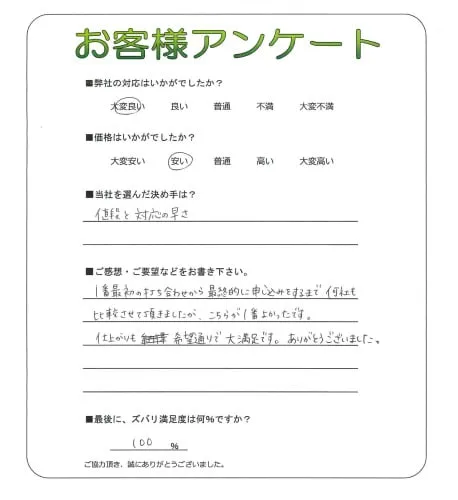 お客様アンケート
■弊社の対応はいかがでしたか？
大変良い 良い 普通 不満 大変不満
■価格はいかがでしたか？
大変安い 安い 普通 高い 大変高い
■当社を選んだ決め手は？
値段と対応の早さ
■ご感想・ご要望などをお書き下さい。
1番最初の打ち合わせから最終的に申し込みをするまで何社も
比較させて頂きましたが、こちらが1番よかったです。
仕上がりも 希望通りで大満足です。ありがとうございました。
■最後に、ズバリ満足度は何%ですか？
100 %
ご協力頂き、誠にありがとうございました。